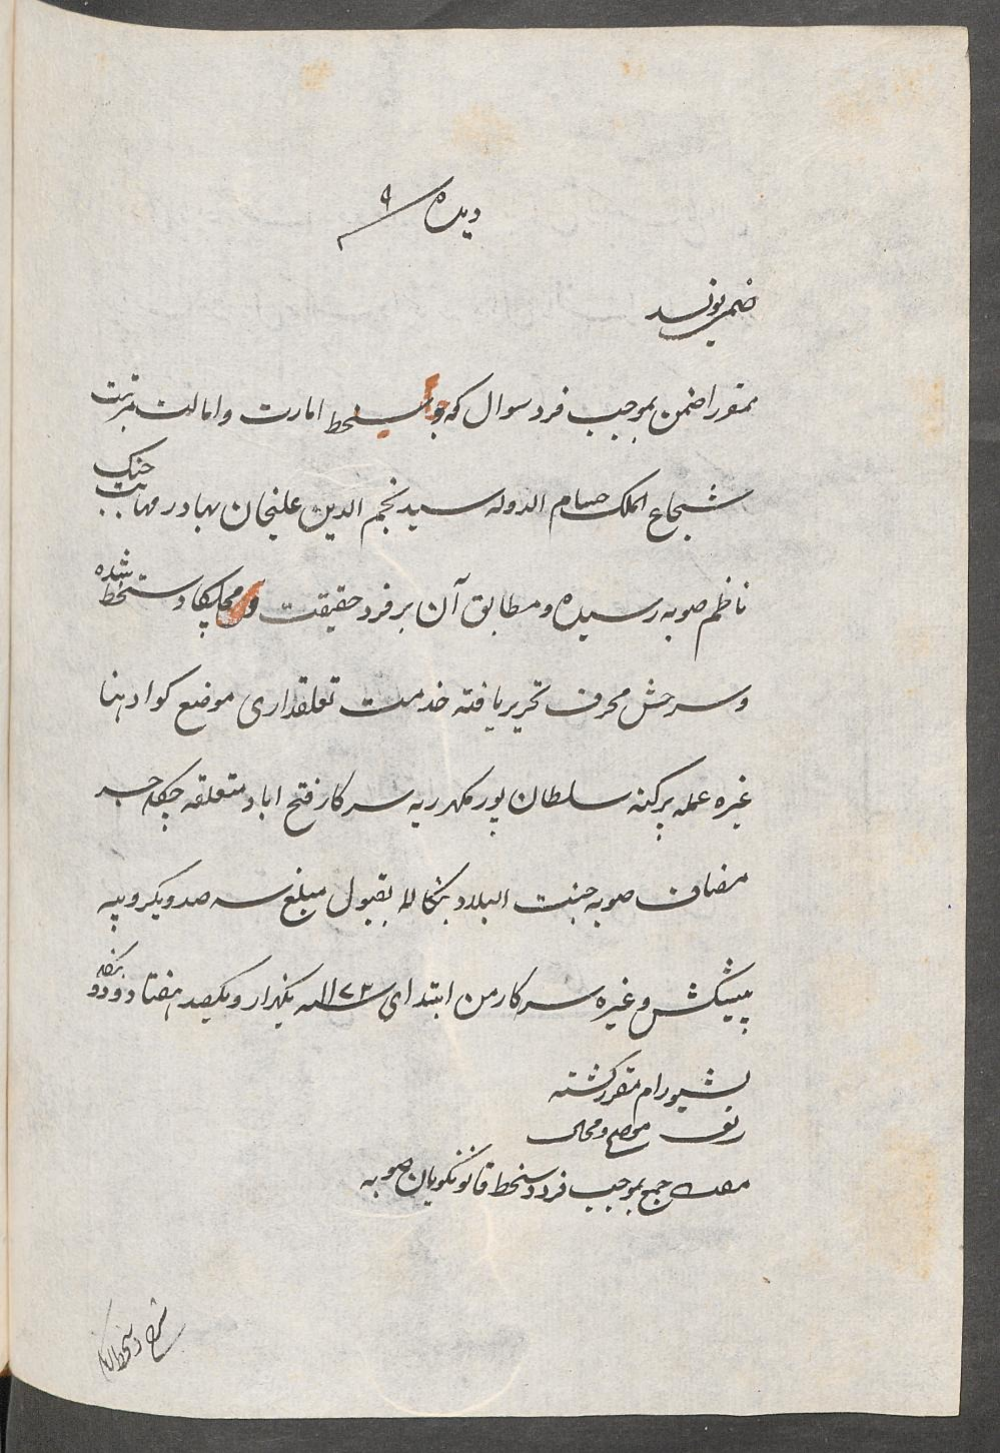 دیده ۹
ضمن نویسد
مقرر اضمن بموجب فرد سوال که بدستخط امارت و ایالت مرتبت
شجاع الملک حسام الدوله سید نجم الدین علیخان بهادر مهابت جنک
ناظم صوبه رسیده و مطابق آن بر فرد حقیقت و مچلکا دستخط شده
و سرحش محرف تحریر یافته خدمت تعلقداری موضع
غیره عمله پرکنه سلطان پور سرکار فتح اباد متعلقه چکله
مضاف صوبه جنت البلاد بنکاله بقبول مبلغ سه صد و یکروپیه
پیشکش و غیره سرکار من ابتدای سنه ۱۱۷۲ یکهزار و یکصد هفتاد و دو بنکله
بشیورام مقرر کشته
موضع و محال
جمع بموجب فرد دستخط قانونکویان صوبه
شرح دستخط